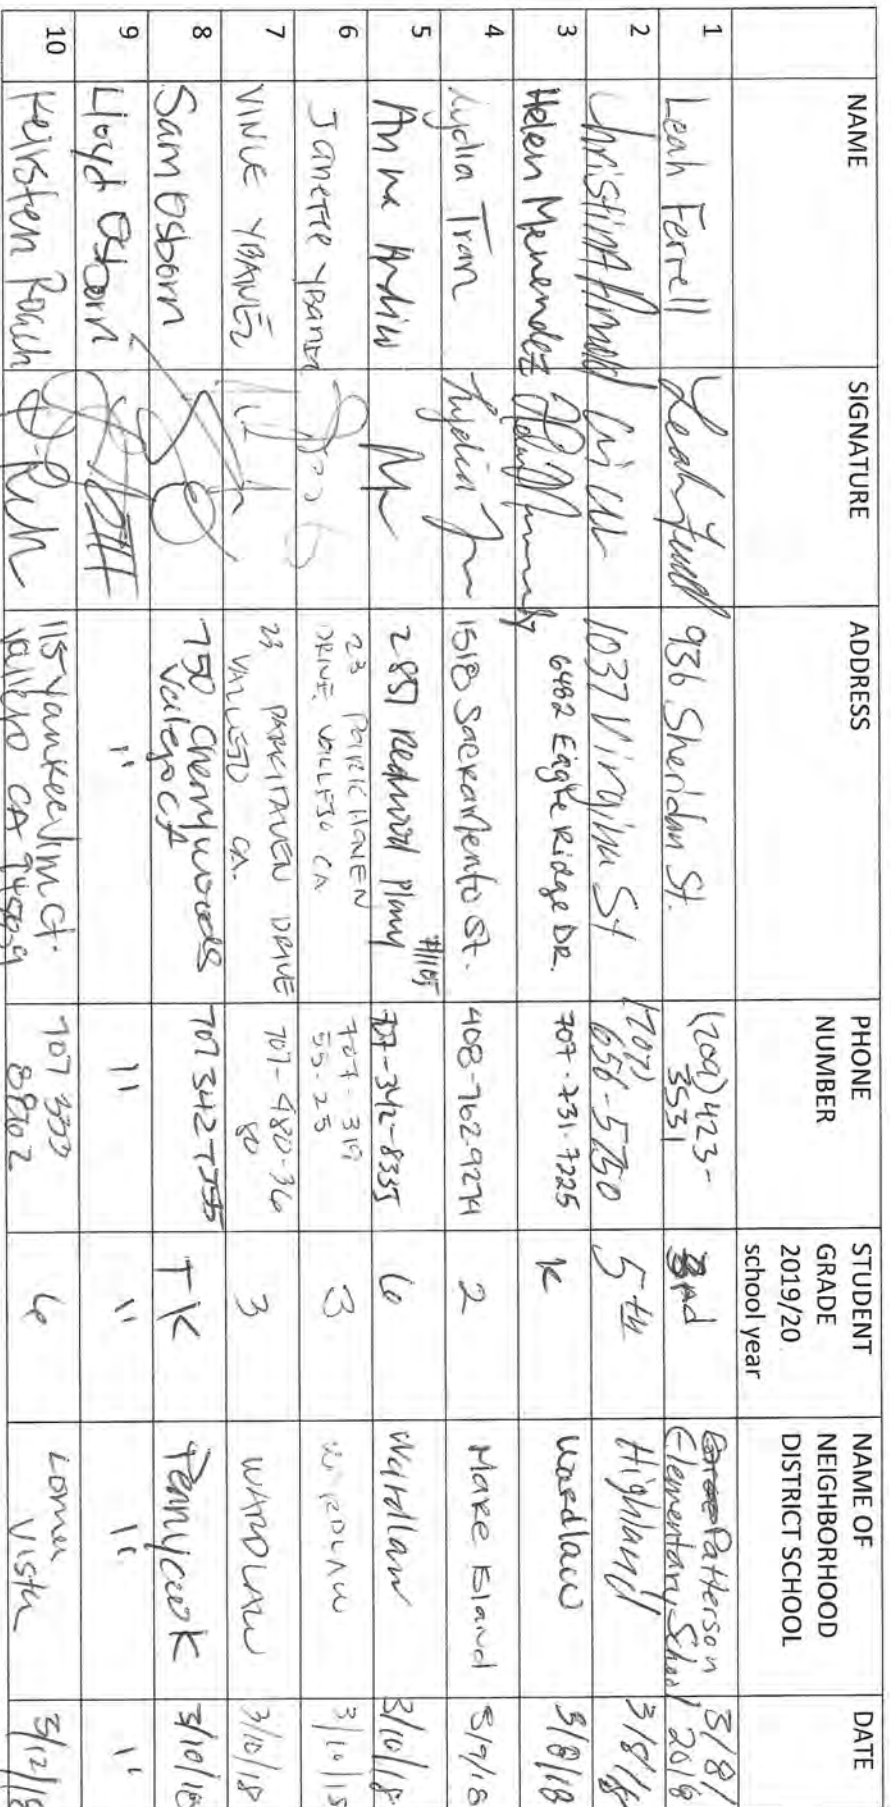 NAME SIGNATURE ADDRESS PHONE NUMBER STUDENT GRADE 2019/20 school year NAME OF NEIGHBORHOOD DISTRICT SCHOOL DATE
1 Leah Ferrell 936 Sheridan St. (209) 423-3531 3rd Patterson Elementary School 3/8/2018
2 Christina 1037 Virginia St (707) 656-5750 5th Highland 3/8/18
3 Helen Menendez 6482 Eagle Ridge DR. 707-731-7225 K Wardlaw 3/8/18
4 Lydia Tran Lydia 1518 Sacramento St. 408-762-9274 2 Mare Island 3/9/18
5 2851 Redwood Pkwy #1105 707-342-8335 6 Wardlaw 3/10/18
6 Janette Ybanez 23 PARKHAVEN DRIVE, VALLEJO CA 707-319-55-25 3 WARDLAW 3/10/18
7 VINCE YBANEZ 23 PARKHAVEN DRIVE VALLEJO CA. 707-480-36 80 3 WARDLAW 3/10/18
8 Sam Osborn 750 Cherrywoods Vallejo CA 707 342 TK Pennycook 3/10/18
9 Lloyd Osborn " " " " "
10 Roach 115 Yankee Jim Ct. Vallejo CA 707 6 Loma Vista 3/12/18